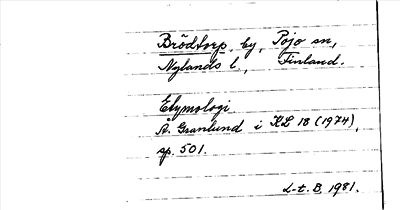 Brödtorp, by, Pojo sn,
Nylands l., Finland.
Etymologi
Å. Granlund i KL 18 (1974),
sp. 501.
L-t. B. 1981.